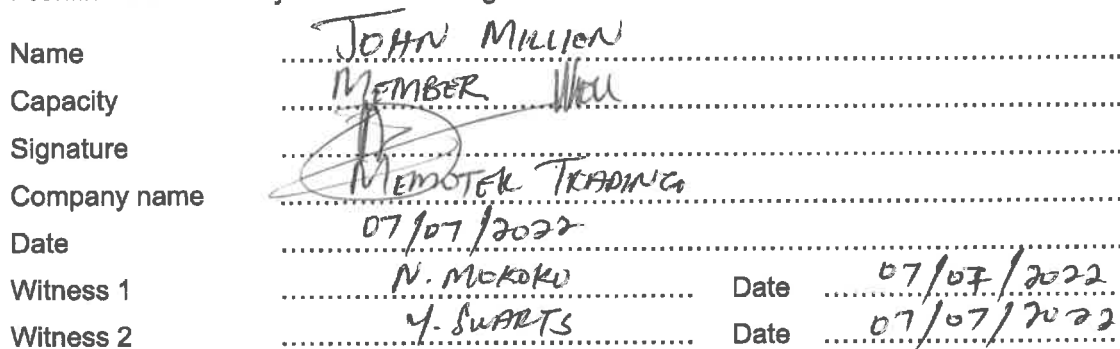 Name JOHN MILLION
Capacity MEMBER
Signature
Company name MEMOTEK TRADING
Date 07/07/2022
Witness 1 N. MOKOKO Date 07/07/2022
Witness 2 Y. SWARTS Date 07/07/2022